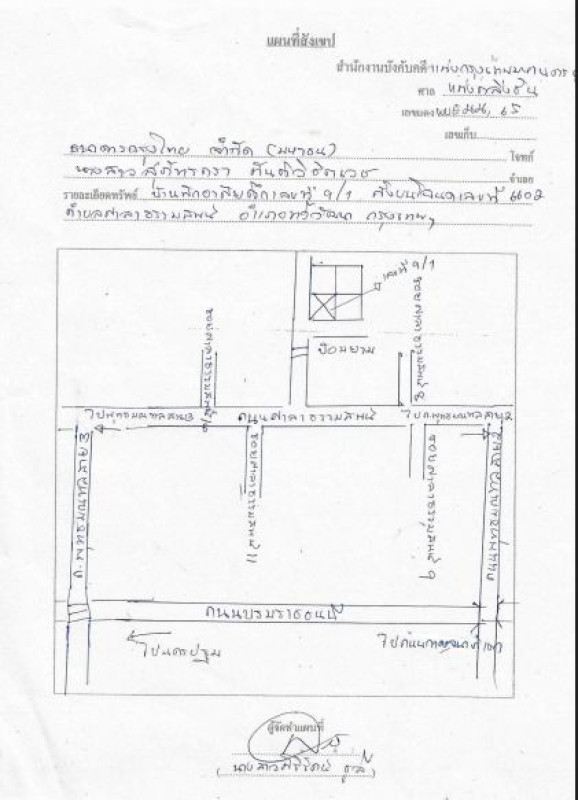 แผนที่สังเขป
สำนักงานบังคับคดีแพ่งกรุงเทพมหานคร
ศาล แพ่งตลิ่งชัน
เลขแดง
เลขเก็บ
ธนาคารกรุงไทย จำกัด (มหาชน) โจทก์
นางสาว จำเลย
รายละเอียดทรัพย์ บ้านพักอาศัยตึกเลขที่ 9/1 ตั้งบนโฉนดเลขที่ 6602
ตำบลศาลาธรรมสพน์ อำเภอทวีวัฒนา กรุงเทพฯ
เลขที่ 9/1
ป้อมยาม
ซอยศาลาธรรมสพน์
ซอยศาลาธรรมสพน์ 8
ไปพุทธมณฑลสาย 3
ถนนศาลาธรรมสพน์
ไปถ.พุทธมณฑลสาย 2
ซอยศาลาธรรมสพน์ 11
ซอยศาลาธรรมสพน์ 9
ถ.พุทธมณฑลสาย 3
ถนนพุทธมณฑลสาย 2
ถนนบรมราชชนนี
ไปนครปฐม
ไปถนนกาญจนาภิเษก
ผู้จัดทำแผนที่
นางสาวศิริรัตน์